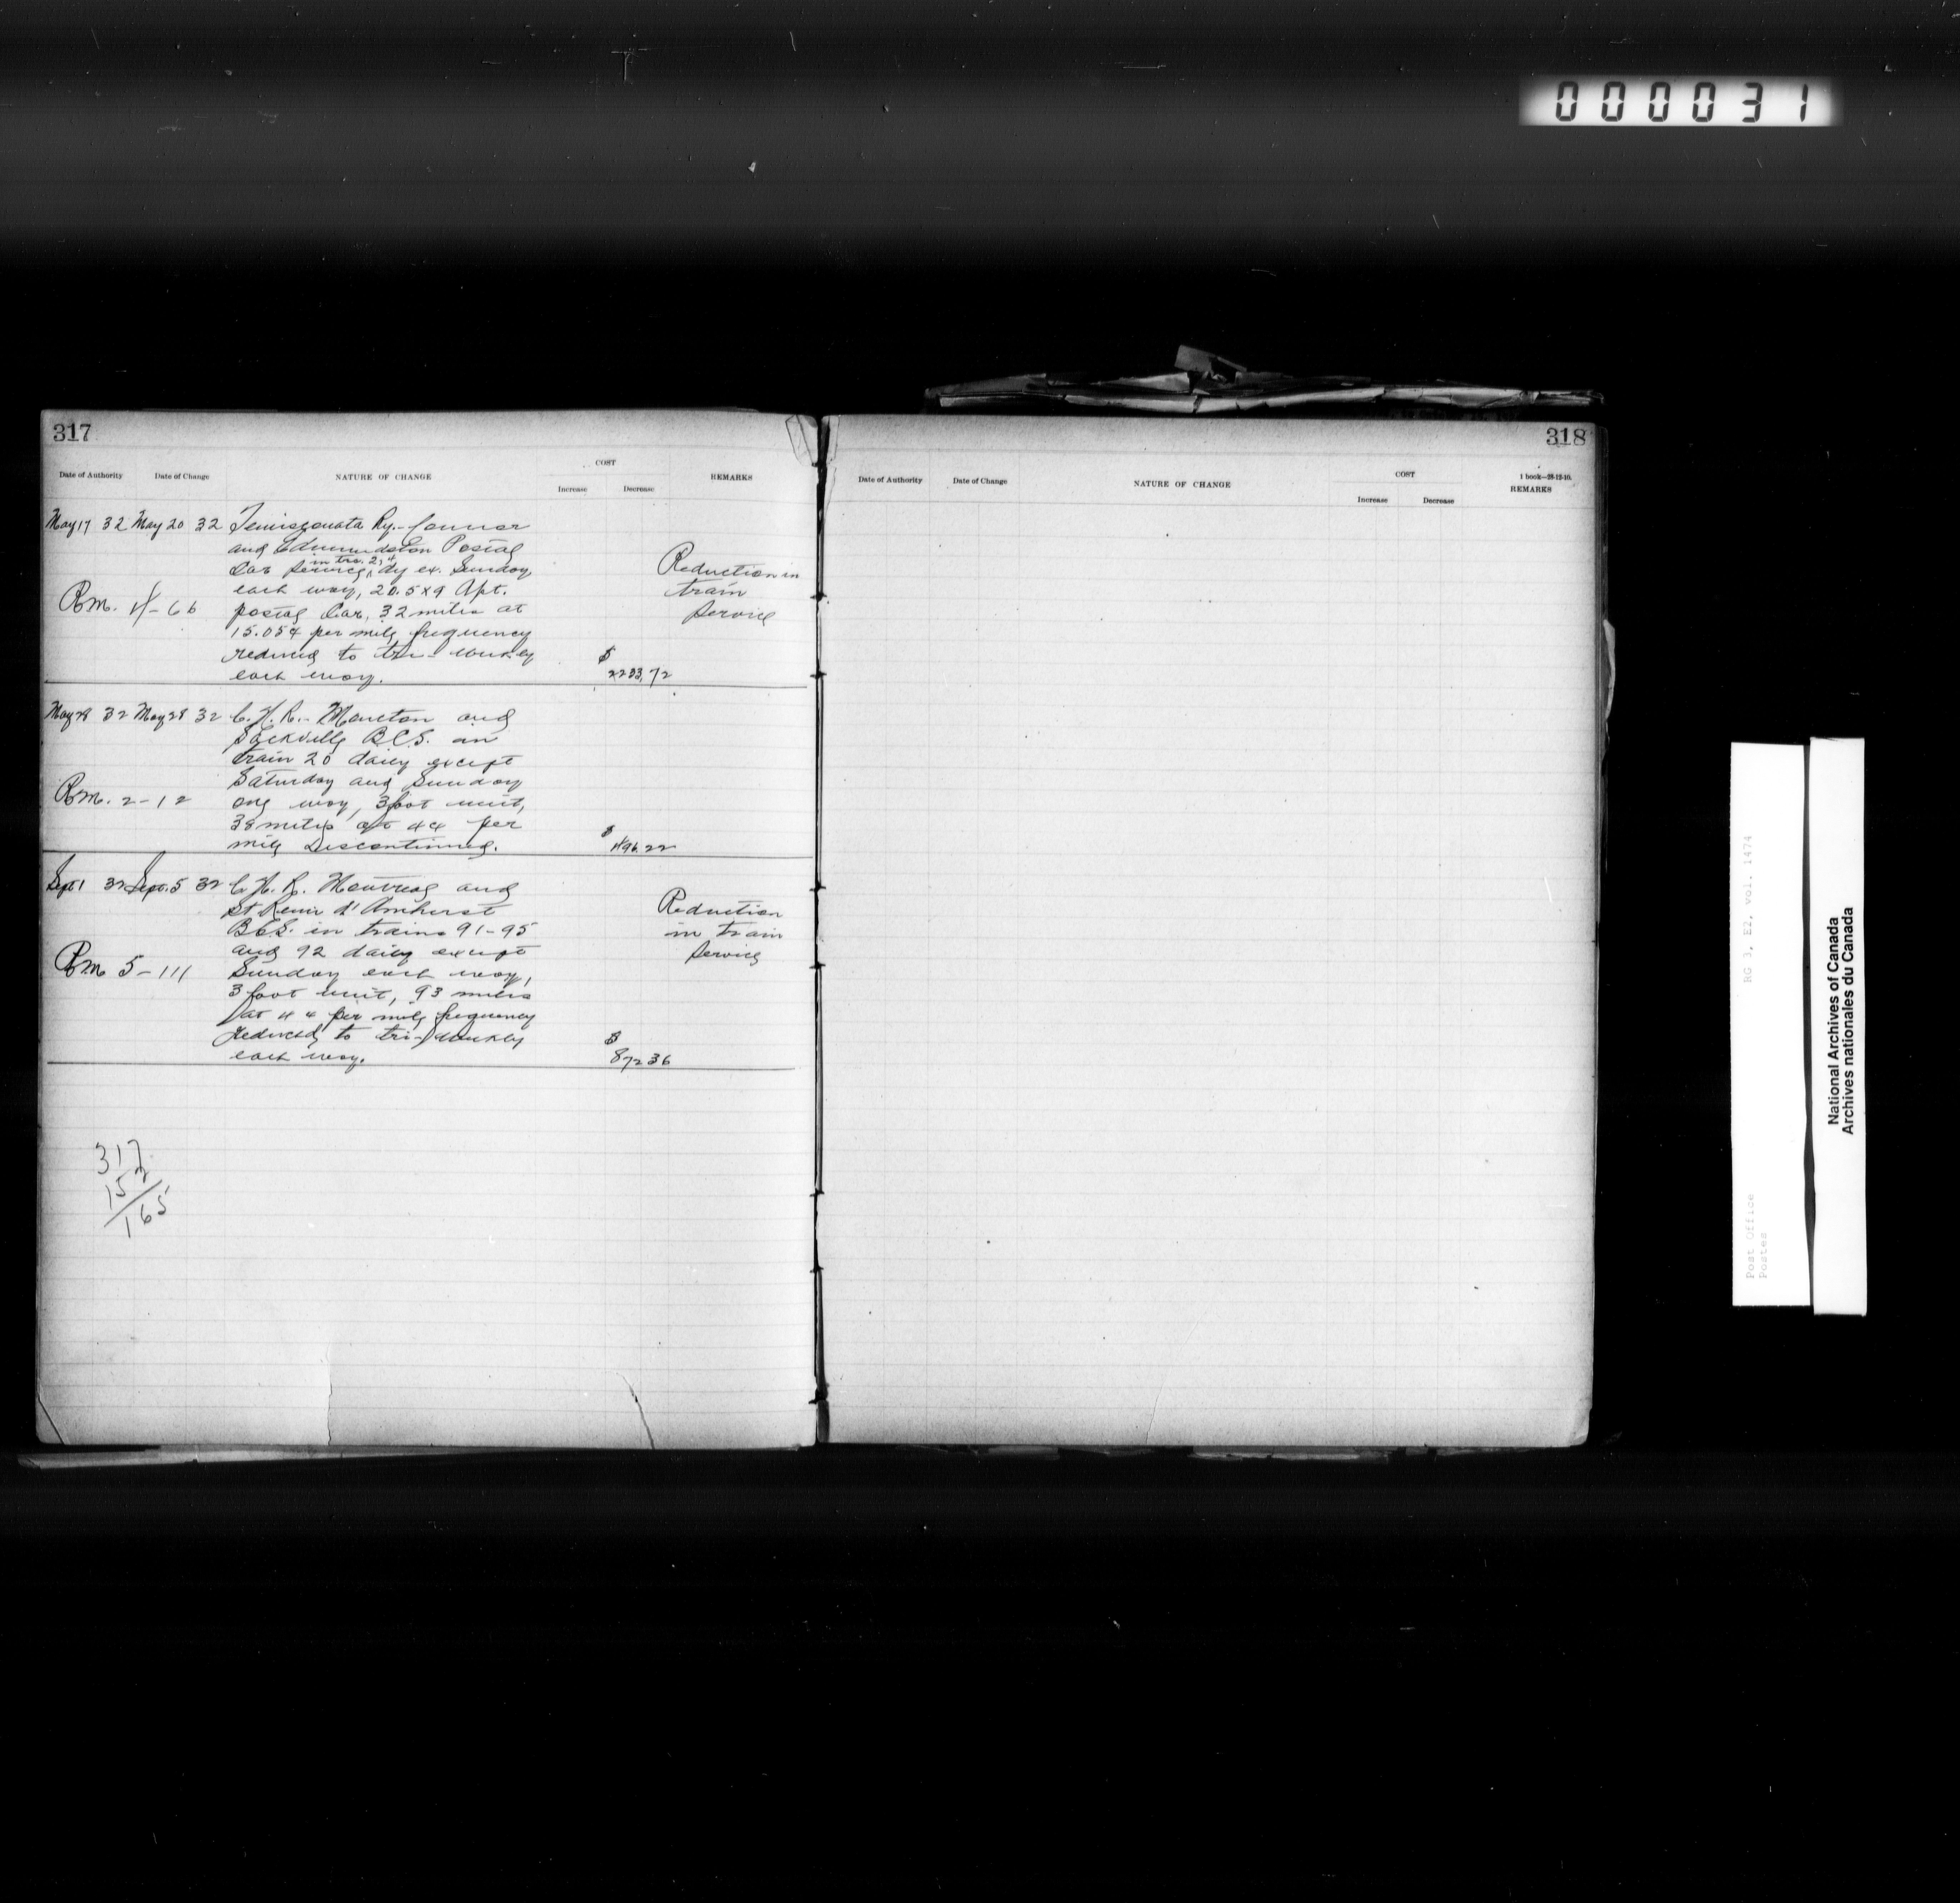 000031
317
Date of Authority Date of Change NATURE OF CHANGE COST REMARKS
Increase Decrease
May 17 32 May 20 32 Temiscouata Ry. - Connor
and Edmundston Postal
in trs. 2, 4
Car Service, dy ex. Sunday
each way, 20.5 x 9 Apt.
Rm. 4-66 postal Car, 32 miles at
15.05¢ per mile frequency
reduced to tri-weekly $
each way. 2233.72
Reduction in
train
service
May 28 32 May 28 32 C. N. R. - Moncton and
Sackville B.C.S. on
train 20 daily except
Saturday and Sunday
Rm. 2-12 one way, 3 foot unit,
38 miles at 4¢ per $
mile Discontinued. 496.22
Sept 1 32 Sept. 5 32 C. N. R. Montreal and
St Remi d'Amherst
B.C.S. in trains 91-95
and 92 daily except
Rm 5-111 Sunday each way,
3 foot unit, 93 miles
at 4¢ per mile frequency
reduced to tri-weekly $
each way. 872 36
Reduction
in train
service
317
152
165
318
Date of Authority Date of Change NATURE OF CHANGE COST 1 book-28-12-10.
REMARKS
Increase Decrease
RG 3, E2, vol. 1474
Post Office
Postes
National Archives of Canada
Archives nationales du Canada